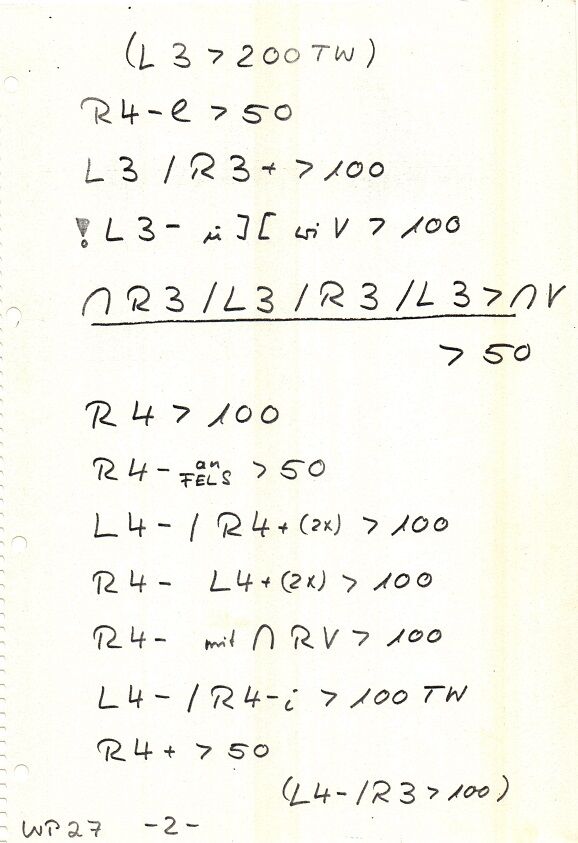 (L 3 > 200 TW)
R4-e > 50
L3 / R3+ > 100
! L3- ][ V > 100
∩ R3 / L3 / R3 / L3 > ∩ V
> 50
R4 > 100
R4- an FELS > 50
L4- / R4+ (2x) > 100
R4- L4+ (2x) > 100
R4- mit ∩ RV > 100
L4- / R4-i > 100 TW
R4+ > 50
(L4- / R3 > 100)
WP27 -2-